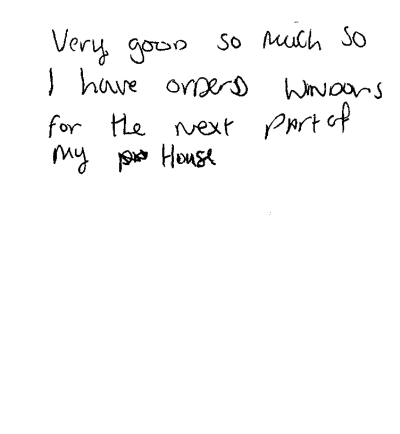 Very good so much so
I have orders windows
for the next part of
my House